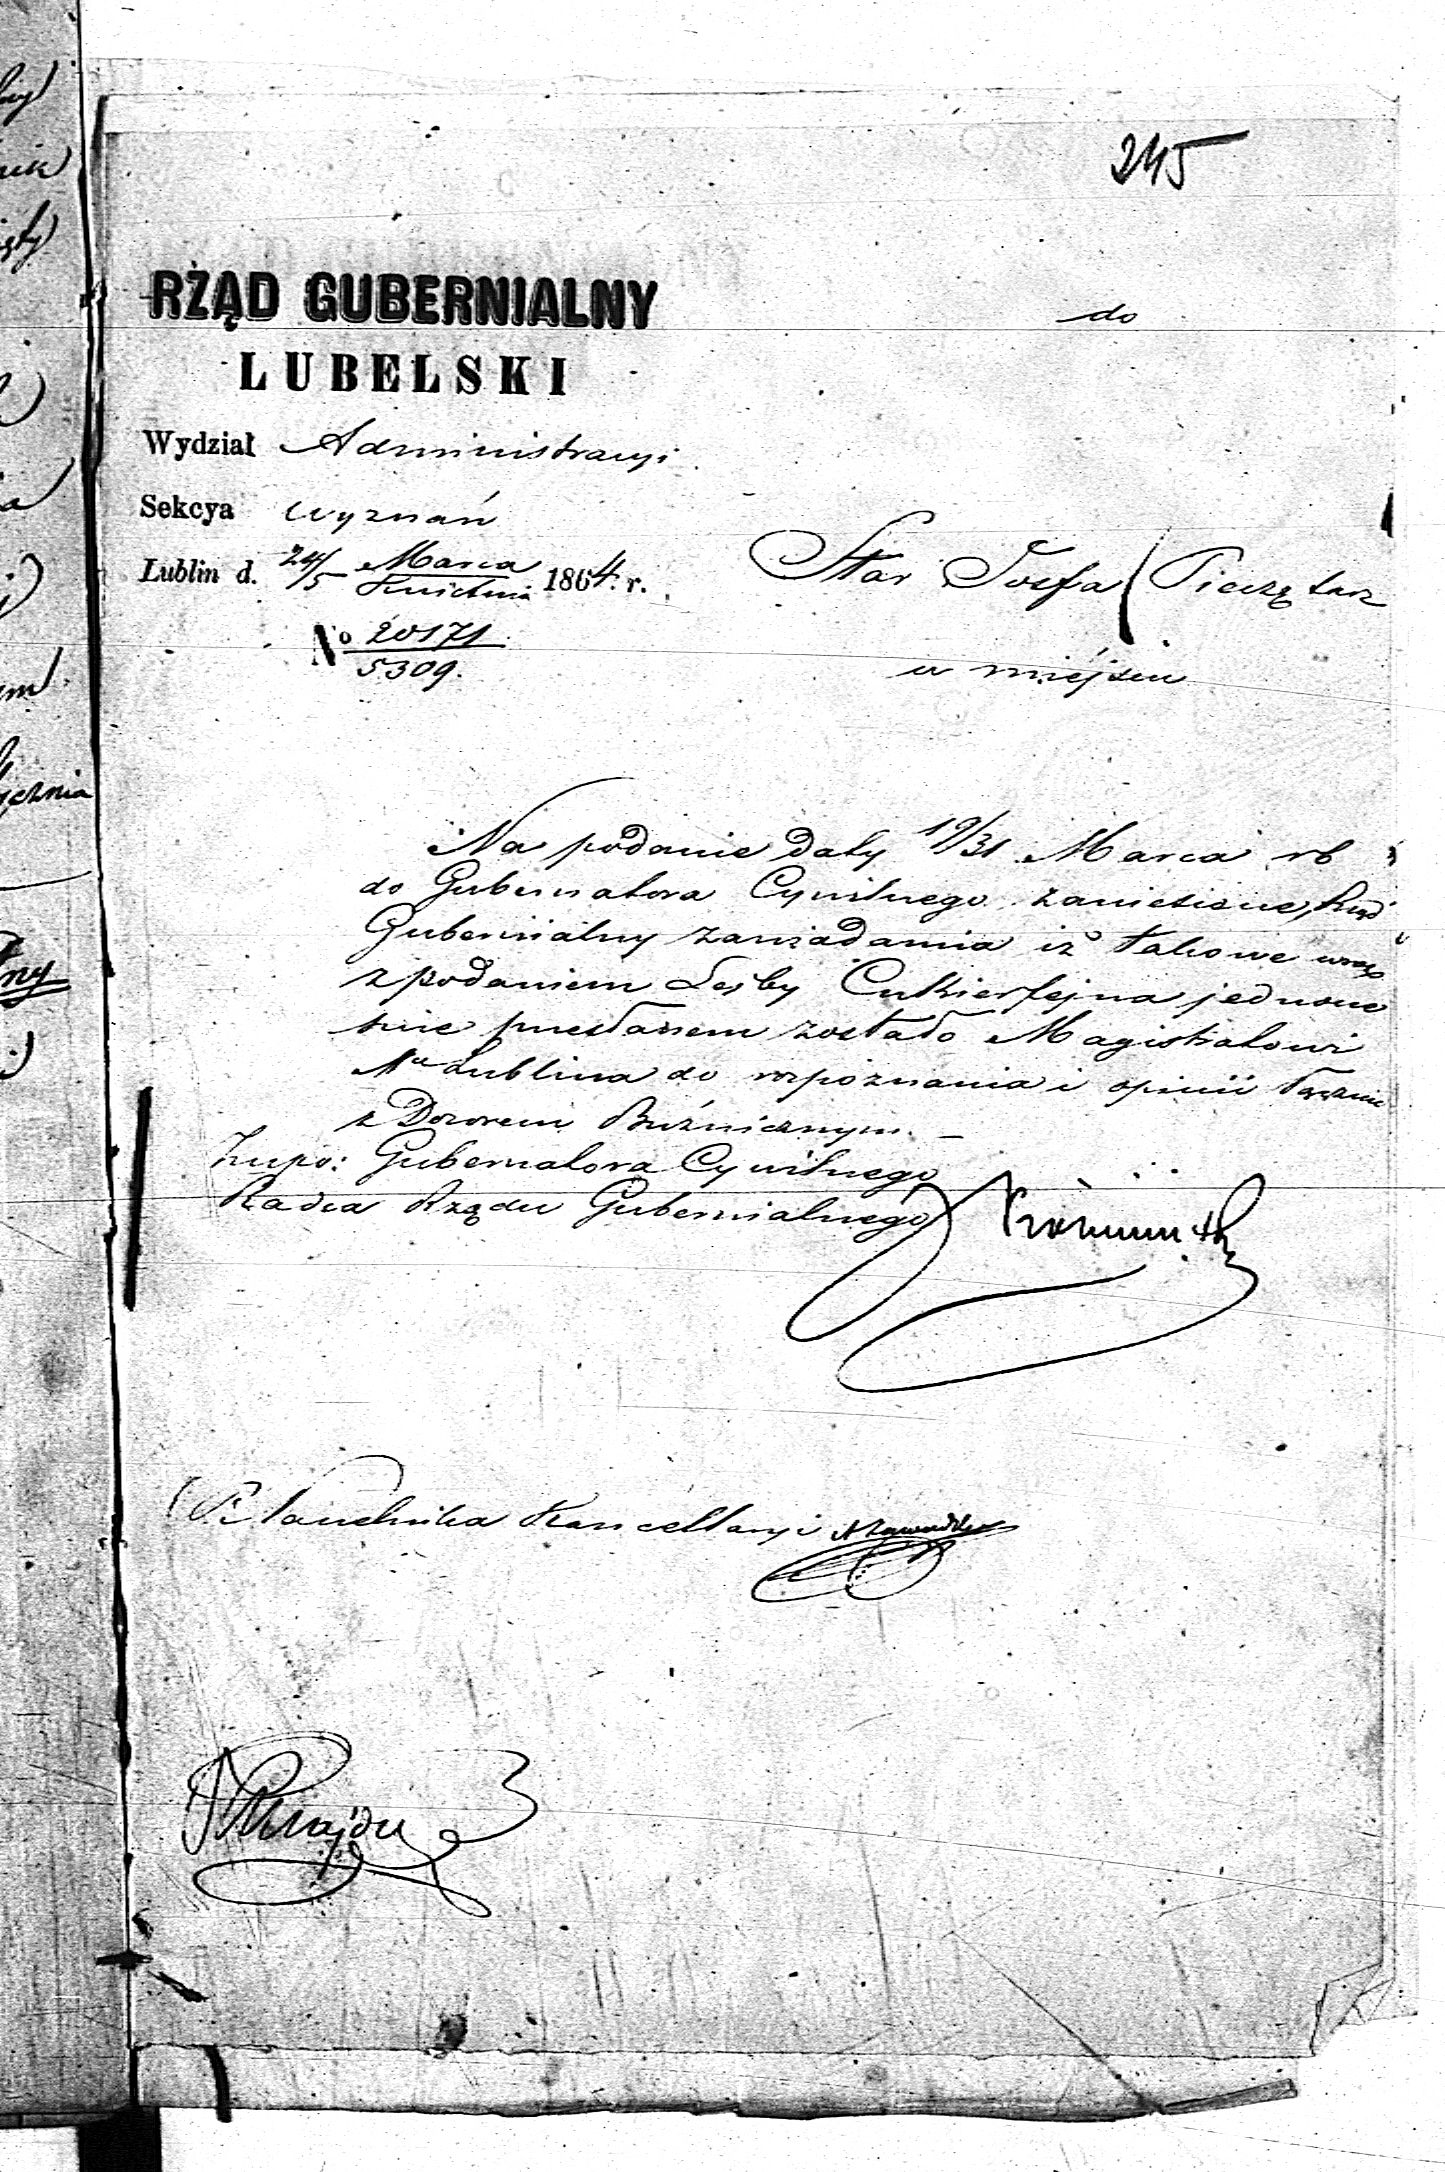 245
RZĄD GUBERNIALNY
LUBELSKI
do
Wydział Administracyi
Sekcya Wyznań
Lublin d. 24/5 Marca/Kwietnia 1864 r.
Star Josfa Pieczętarz
No 20171/5309.
w miéjscu
Na podanie daty 19/31 Marca rb
do Gubernatora Cywilnego zaniesione, Rząd
Gubernialny zawiadamia iż takowe wraz
z podaniem Lejby Cukierfejna jednocze
śnie przesłanem zostało Magistratowi
Mta Lublina do rozpoznania i opinii łącznie
z Dozorem Bużnicznym. —
Zupo: Gubernatora Cywilnego
Radca Rządu Gubernialnego
Naczelnika Kancellaryi